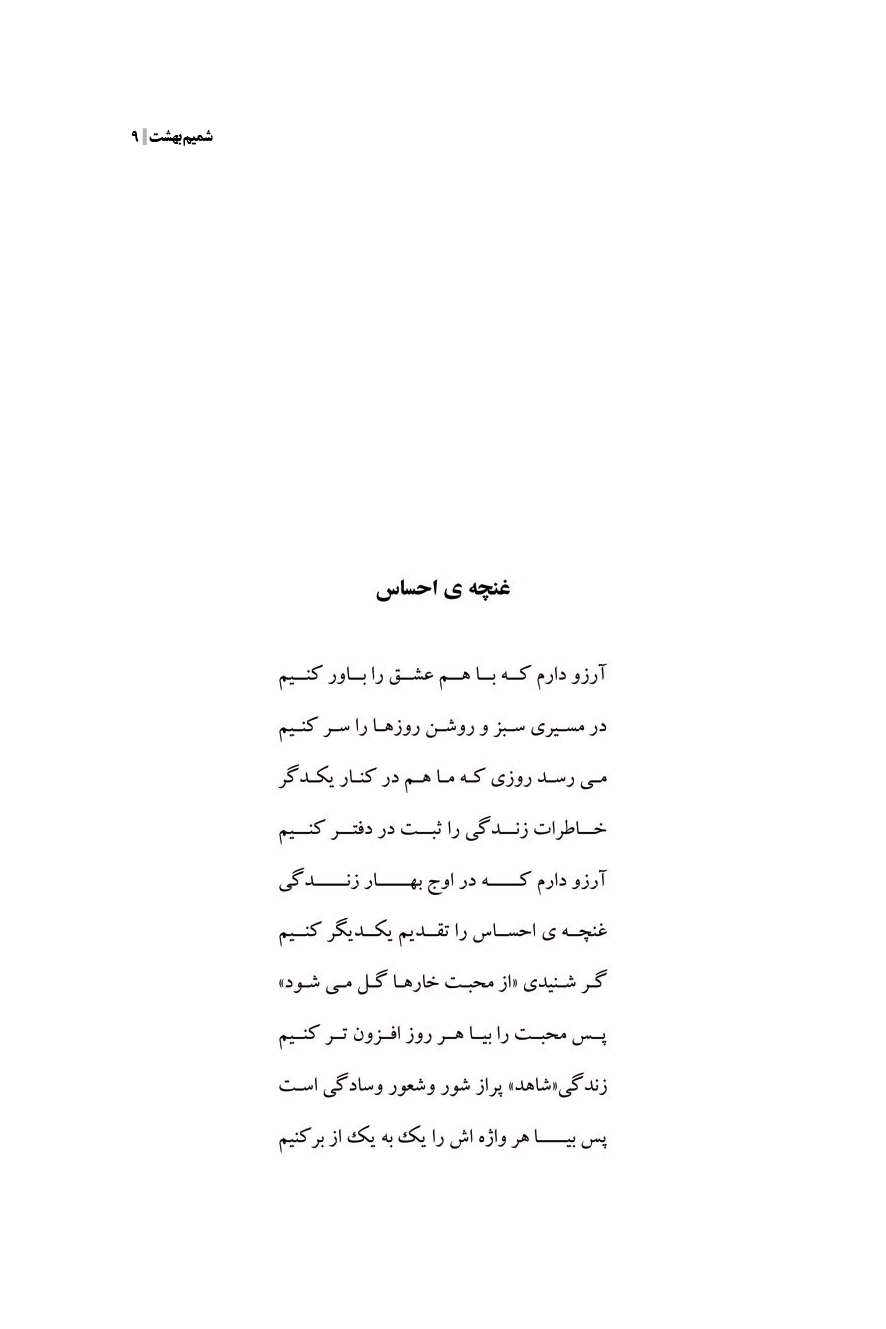 شمیم بهشت | ۹
غنچه ی احساس
آرزو دارم که با هم عشق را باور کنیم
در مسیری سبز و روشن روزها را سر کنیم
می رسد روزی که ما هم در کنار یکدگر
خاطرات زندگی را ثبت در دفتر کنیم
آرزو دارم که در اوج بهار زندگی
غنچه ی احساس را تقدیم یکدیگر کنیم
گر شنیدی «از محبت خارها گل می شود»
پس محبت را بیا هر روز افزون تر کنیم
زندگی«شاهد» پراز شور وشعور وسادگی است
پس بیا هر واژه اش را یک به یک از برکنیم